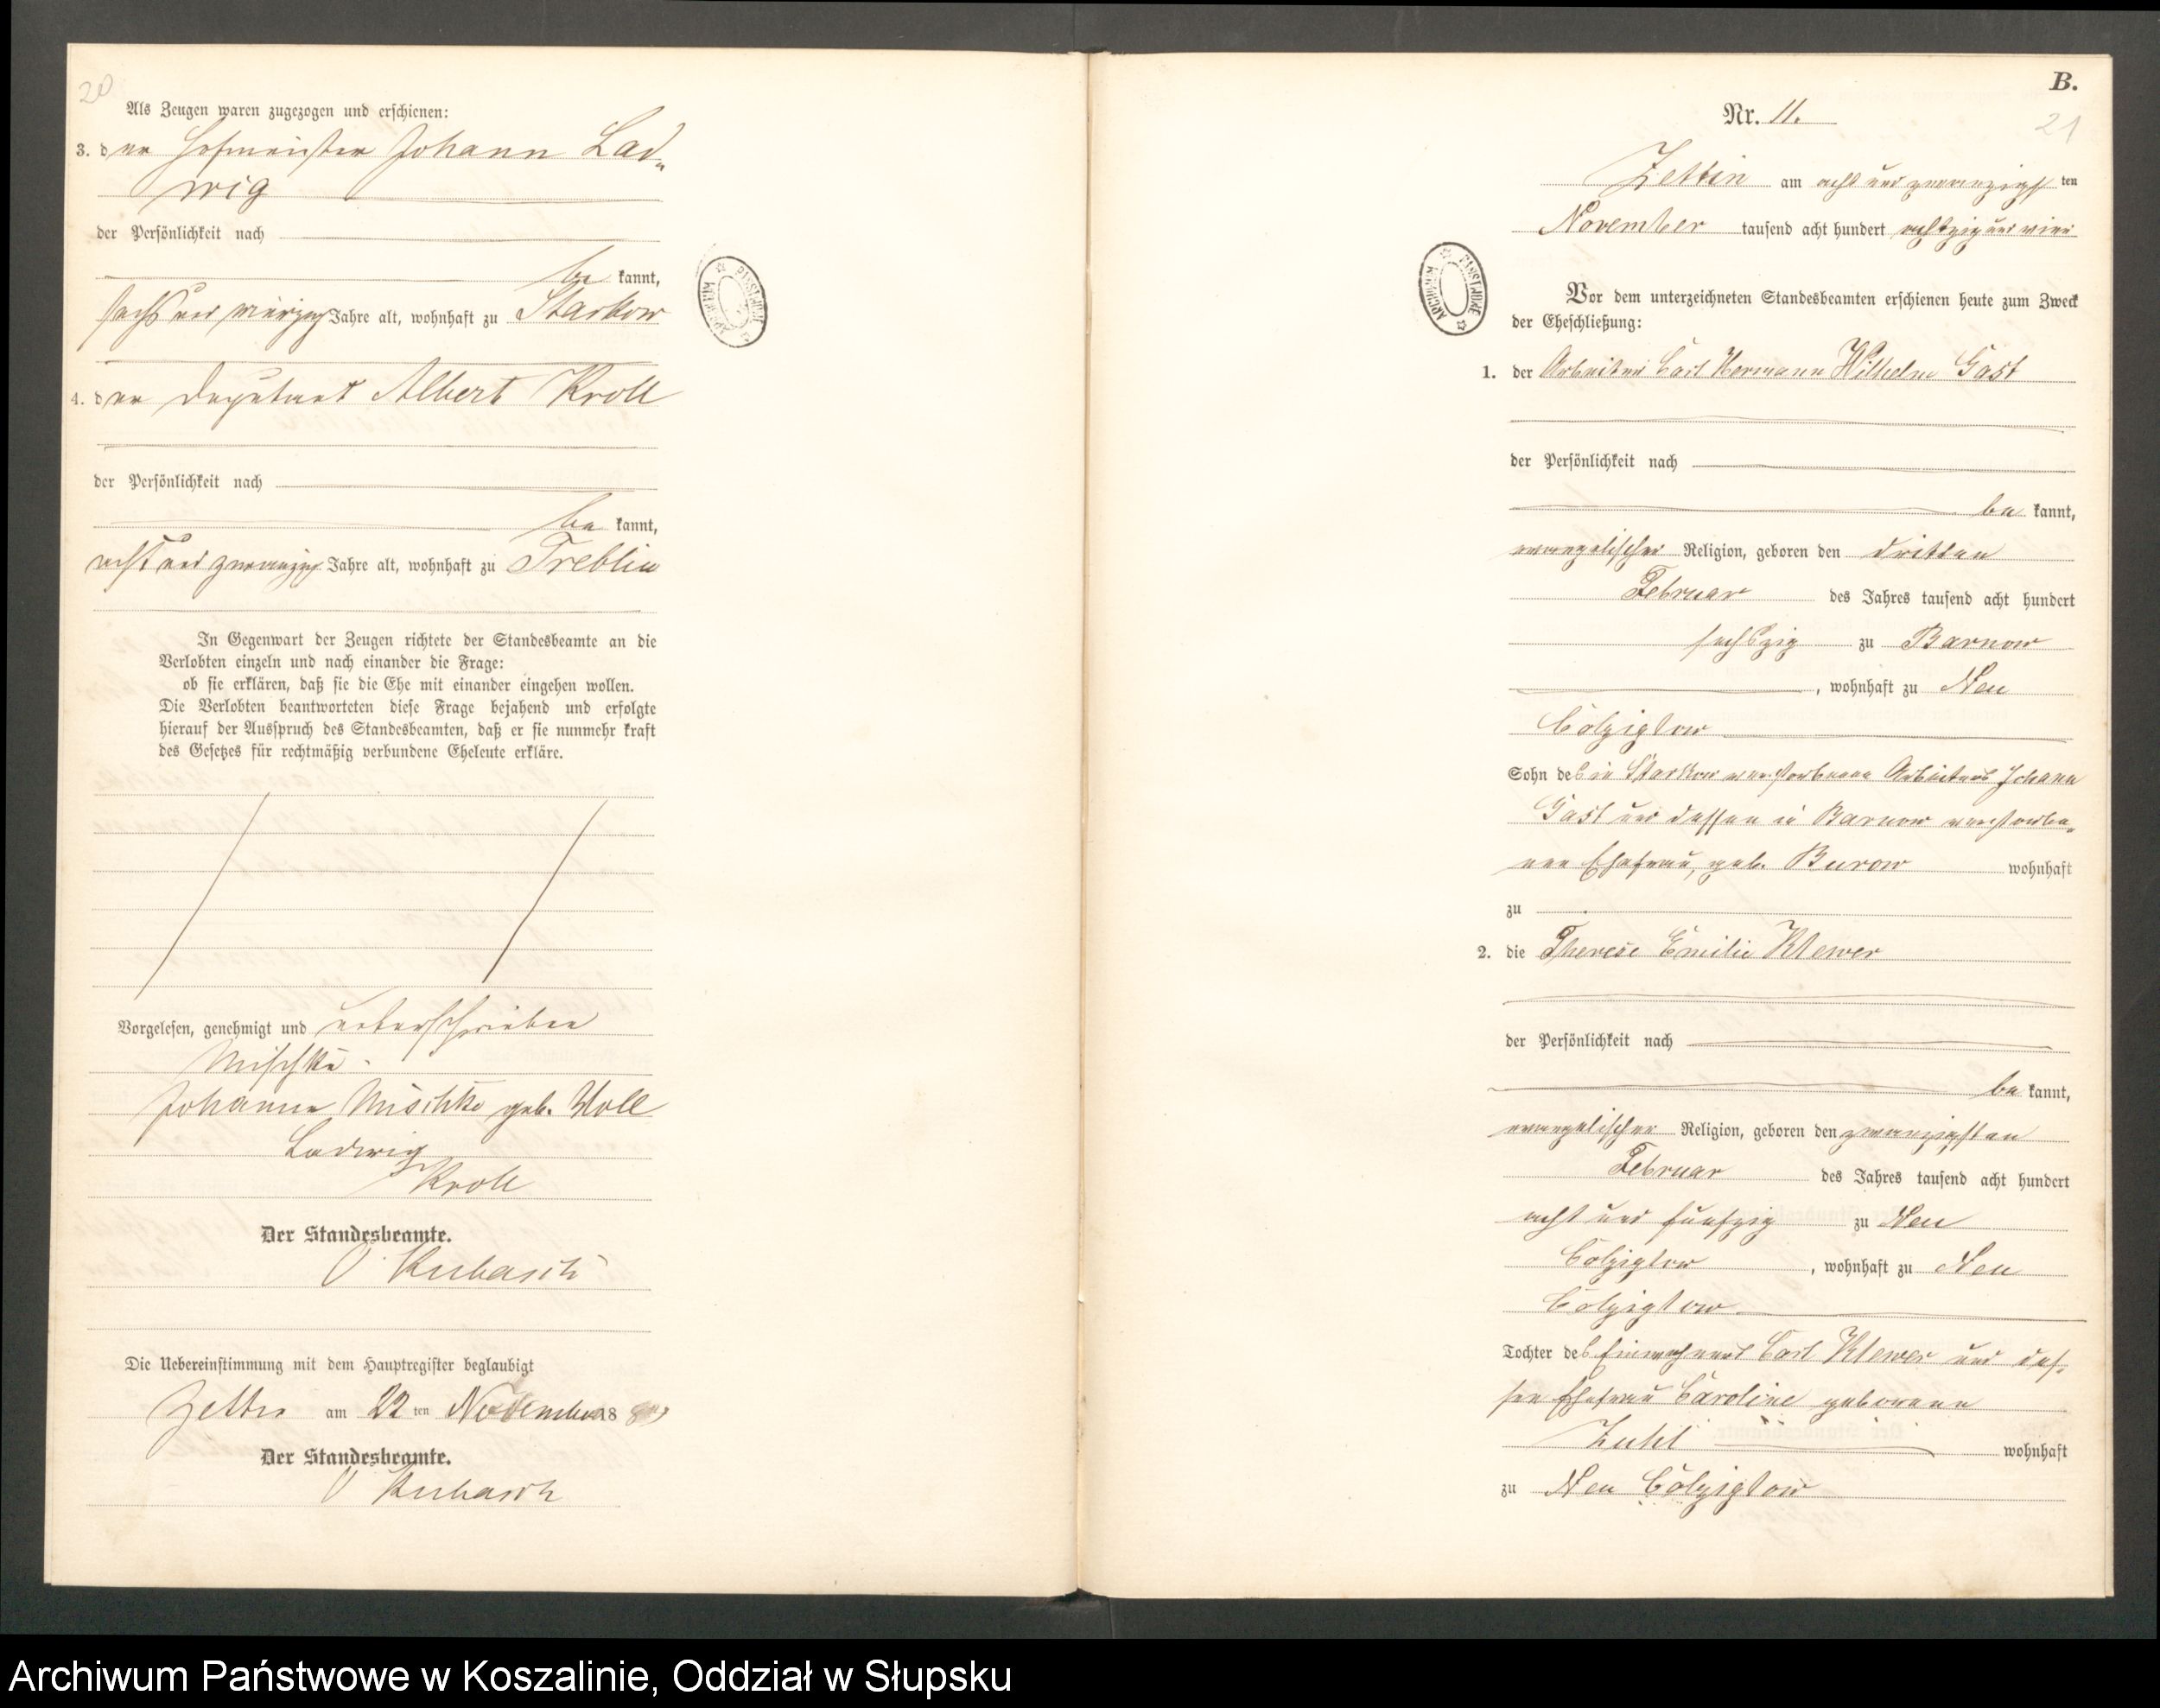 20
Als Zeugen waren zugezogen und erschienen:
3. der Hofmeister Johann Lad-
wig
der Persönlichkeit nach
be kannt,
sechs und vierzig Jahre alt, wohnhaft zu Starkow
4. der Deputant Albert Kroll
der Persönlichkeit nach
be kannt,
acht und zwanzig Jahre alt, wohnhaft zu Treblin
In Gegenwart der Zeugen richtete der Standesbeamte an die
Verlobten einzeln und nach einander die Frage:
ob sie erklären, daß sie die Ehe mit einander eingehen wollen.
Die Verlobten beantworteten diese Frage bejahend und erfolgte
hierauf der Ausspruch des Standesbeamten, daß er sie nunmehr kraft
des Gesetzes für rechtmäßig verbundene Eheleute erkläre.
Vorgelesen, genehmigt und unterschrieben
Mischke
Johanne Mischke geb. Noll
Ladwig
Kroll
Der Standesbeamte.
Kubasch
Die Uebereinstimmung mit dem Hauptregister beglaubigt
Zettin am 22 ten November 18
Der Standesbeamte.
Kubasch
B.
Nr. 11.
21
Zettin am acht und zwanzigs ten
November tausend acht hundert achtzig und vier
Vor dem unterzeichneten Standesbeamten erschienen heute zum Zweck
der Eheschließung:
1. der Arbeiter Carl Hermann Wilhelm Gast
der Persönlichkeit nach
be kannt,
evangelischer Religion, geboren den dritten
Februar des Jahres tausend acht hundert
sechszig zu Barnow
, wohnhaft zu Neu
Colziglow
Sohn des in Starkow verstorbenen Arbeiters Johann
Gast und dessen in Barnow verstorbe-
nen Ehefrau, geb. Burow wohnhaft
zu
2. die Therese Emilie Klewer
der Persönlichkeit nach
be kannt,
evangelischer Religion, geboren den zwanzigsten
Februar des Jahres tausend acht hundert
acht und fünfzig zu Neu
Colziglow , wohnhaft zu Neu
Colziglow
Tochter des Einwohners Carl Klewer und des-
sen Ehefrau Caroline geborene
Zuhl wohnhaft
zu Neu Colziglow
ARCHIWUM PAŃSTWOWE
ARCHIWUM PAŃSTWOWE
Archiwum Państwowe w Koszalinie, Oddział w Słupsku